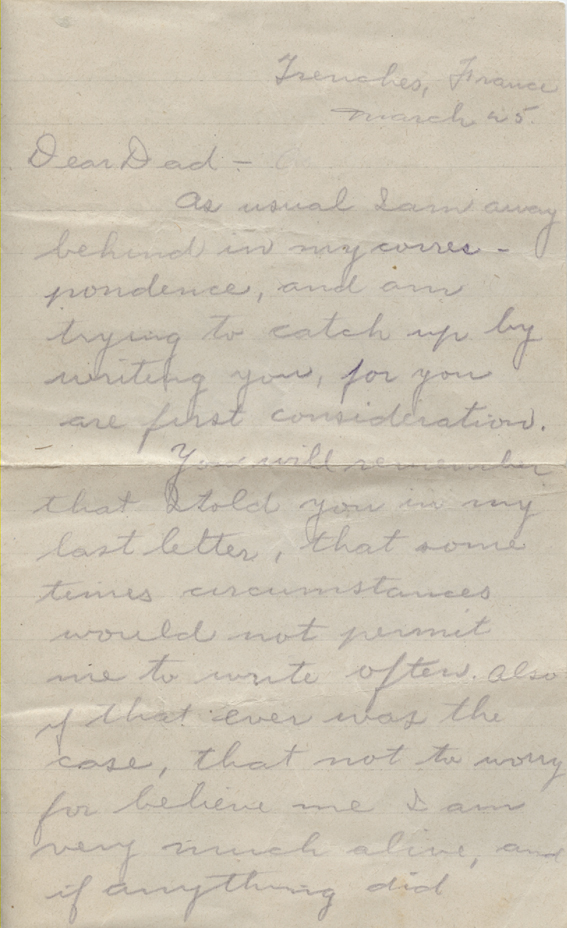 Trenches, France
March 25.
Dear Dad –
As usual I am away
behind in my corres –
pondence, and am
trying to catch up by
writing you, for you
are first consideration.
You will remember
that I told you in my
last letter, that some
times circumstances
would not permit
me to write often. Also
if that ever was the
case, that not to worry
for believe me I am
very much alive, and
if anything did